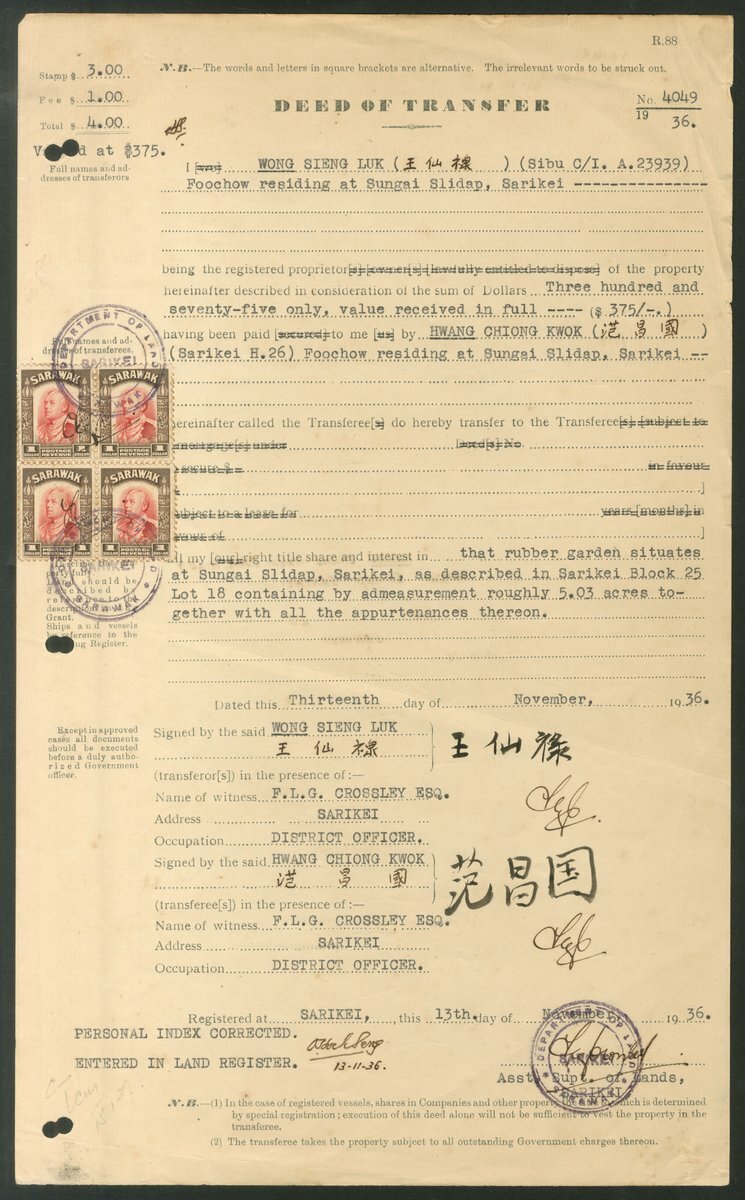 R.88
Stamp $ 3.00
Fee $ 1.00
Total $ 4.00
N.B.—The words and letters in square brackets are alternative. The irrelevant words to be struck out.
DEED OF TRANSFER
No. 4049
19 36.
at $375.
Full names and ad-
dresses of transferors
I [we] WONG SIENG LUK (王仙祿 ) (Sibu C/I. A.23939)
Foochow residing at Sungai Slidap, Sarikei ---------------
being the registered proprietor[s] [owner[s] [lawfully entitled to dispose] of the property
hereinafter described in consideration of the sum of Dollars Three hundred and
seventy-five only, value received in full ---- ($ 375/-.)
having been paid [secured] to me [us] by HWANG CHIONG KWOK (范昌國 )
(Sarikei H.26) Foochow residing at Sungai Slidap, Sarikei --
names and ad-
dresses of transferees.
DEPARTMENT OF LANDS
SARIKEI
SARAWAK
SARAWAK SARAWAK
1 DOLLAR POSTAGE REVENUE 1 DOLLAR POSTAGE REVENUE 1
SARAWAK SARAWAK
1 DOLLAR POSTAGE REVENUE 1 DOLLAR POSTAGE REVENUE 1
hereinafter called the Transferee[s] do hereby transfer to the Transferee[s] [subject to
mortgage[s] under [deed[s] No
secure $ in favour
]
subject to a lease for years [months] in
favour of ]
all my [our] right title share and interest in that rubber garden situates
at Sungai Slidap, Sarikei, as described in Sarikei Block 25
Lot 18 containing by admeasurement roughly 5.03 acres to-
gether with all the appurtenances thereon.
SARIKEI
SARAWAK
should be
described by
reference to
Grant.
Ships and vessels
by reference to the
Register.
Dated this Thirteenth day of November, 1936.
Except in approved
cases all documents
should be executed
before a duly autho-
rized Government
officer.
Signed by the said WONG SIENG LUK
王仙祿 王仙祿
(transferor[s]) in the presence of:—
Name of witness F.L.G. CROSSLEY ESQ.
Address SARIKEI
Occupation DISTRICT OFFICER.
Signed by the said HWANG CHIONG KWOK
范昌國 范昌国
(transferee[s]) in the presence of:—
Name of witness F.L.G. CROSSLEY ESQ.
Address SARIKEI
Occupation DISTRICT OFFICER.
Registered at SARIKEI, this 13th. day of November 1936.
PERSONAL INDEX CORRECTED.
ENTERED IN LAND REGISTER.
13-11-36.
DEPARTMENT OF LANDS
SARIKEI
SARAWAK
Asst. Supt. of Lands,
SARIKEI
N.B.—(1) In the case of registered vessels, shares in Companies and other property the which is determined
by special registration; execution of this deed alone will not be sufficient to vest the property in the
transferee.
(2) The transferee takes the property subject to all outstanding Government charges thereon.